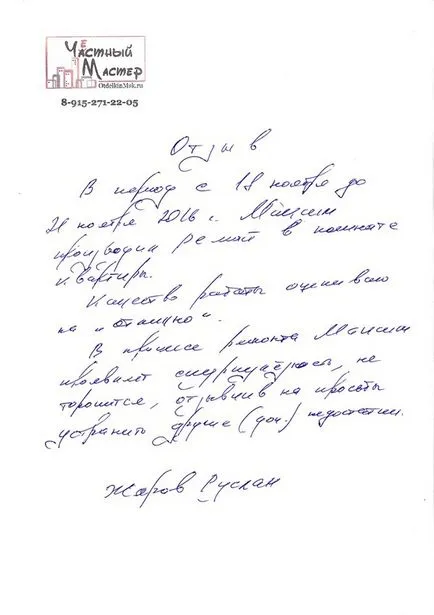 Честный
Мастер
OtdelkinMsk.ru
8-915-271-22-05
Отзыв
В период с 18 ноября до
21 ноября 2016 г. Максим
производил ремонт в комнате
квартиры.
Качество работы оцениваю
на "отлично".
В процессе ремонта Максим
проявил не
торопится, отзывчив на просьбы
устранить другие (доп.) недостатки.
Жаров Руслан